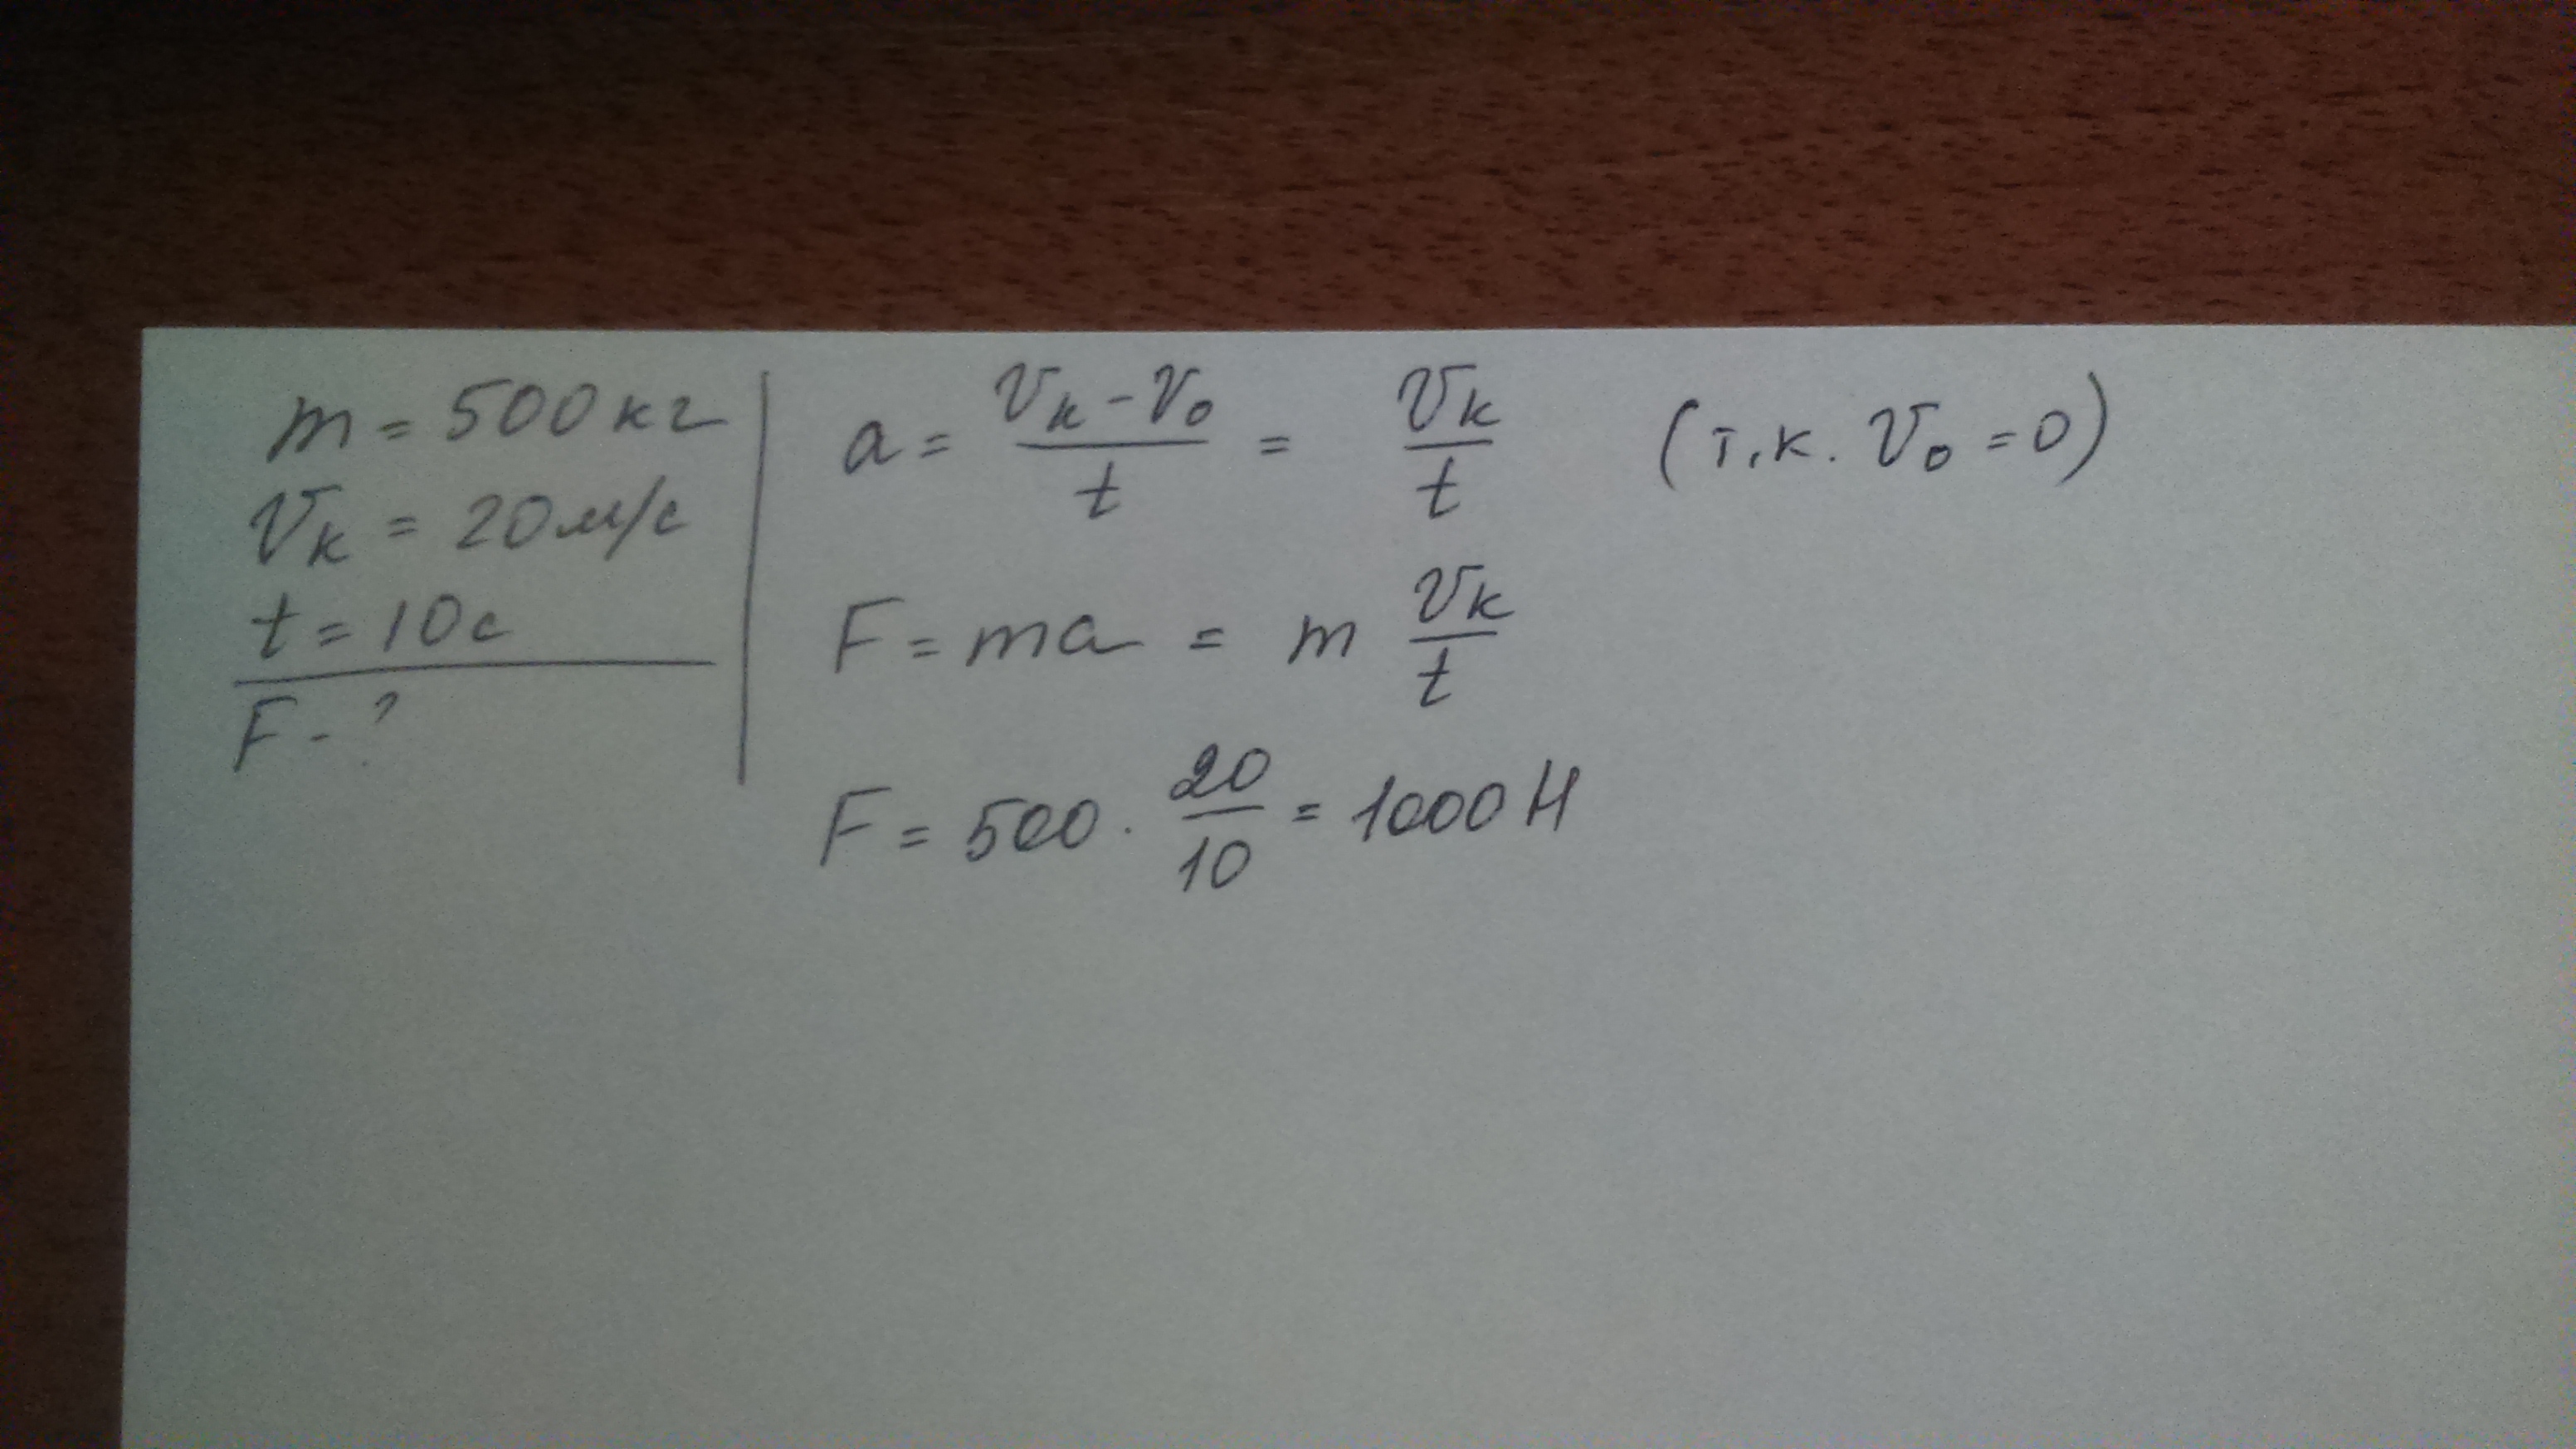 m = 500 кг
v_к = 20 м/с
t = 10 с
F - ?
a = (v_к - v_0)/t = v_к/t (т.к. v_0 = 0)
F = ma = m v_к/t
F = 500 · 20/10 = 1000 Н